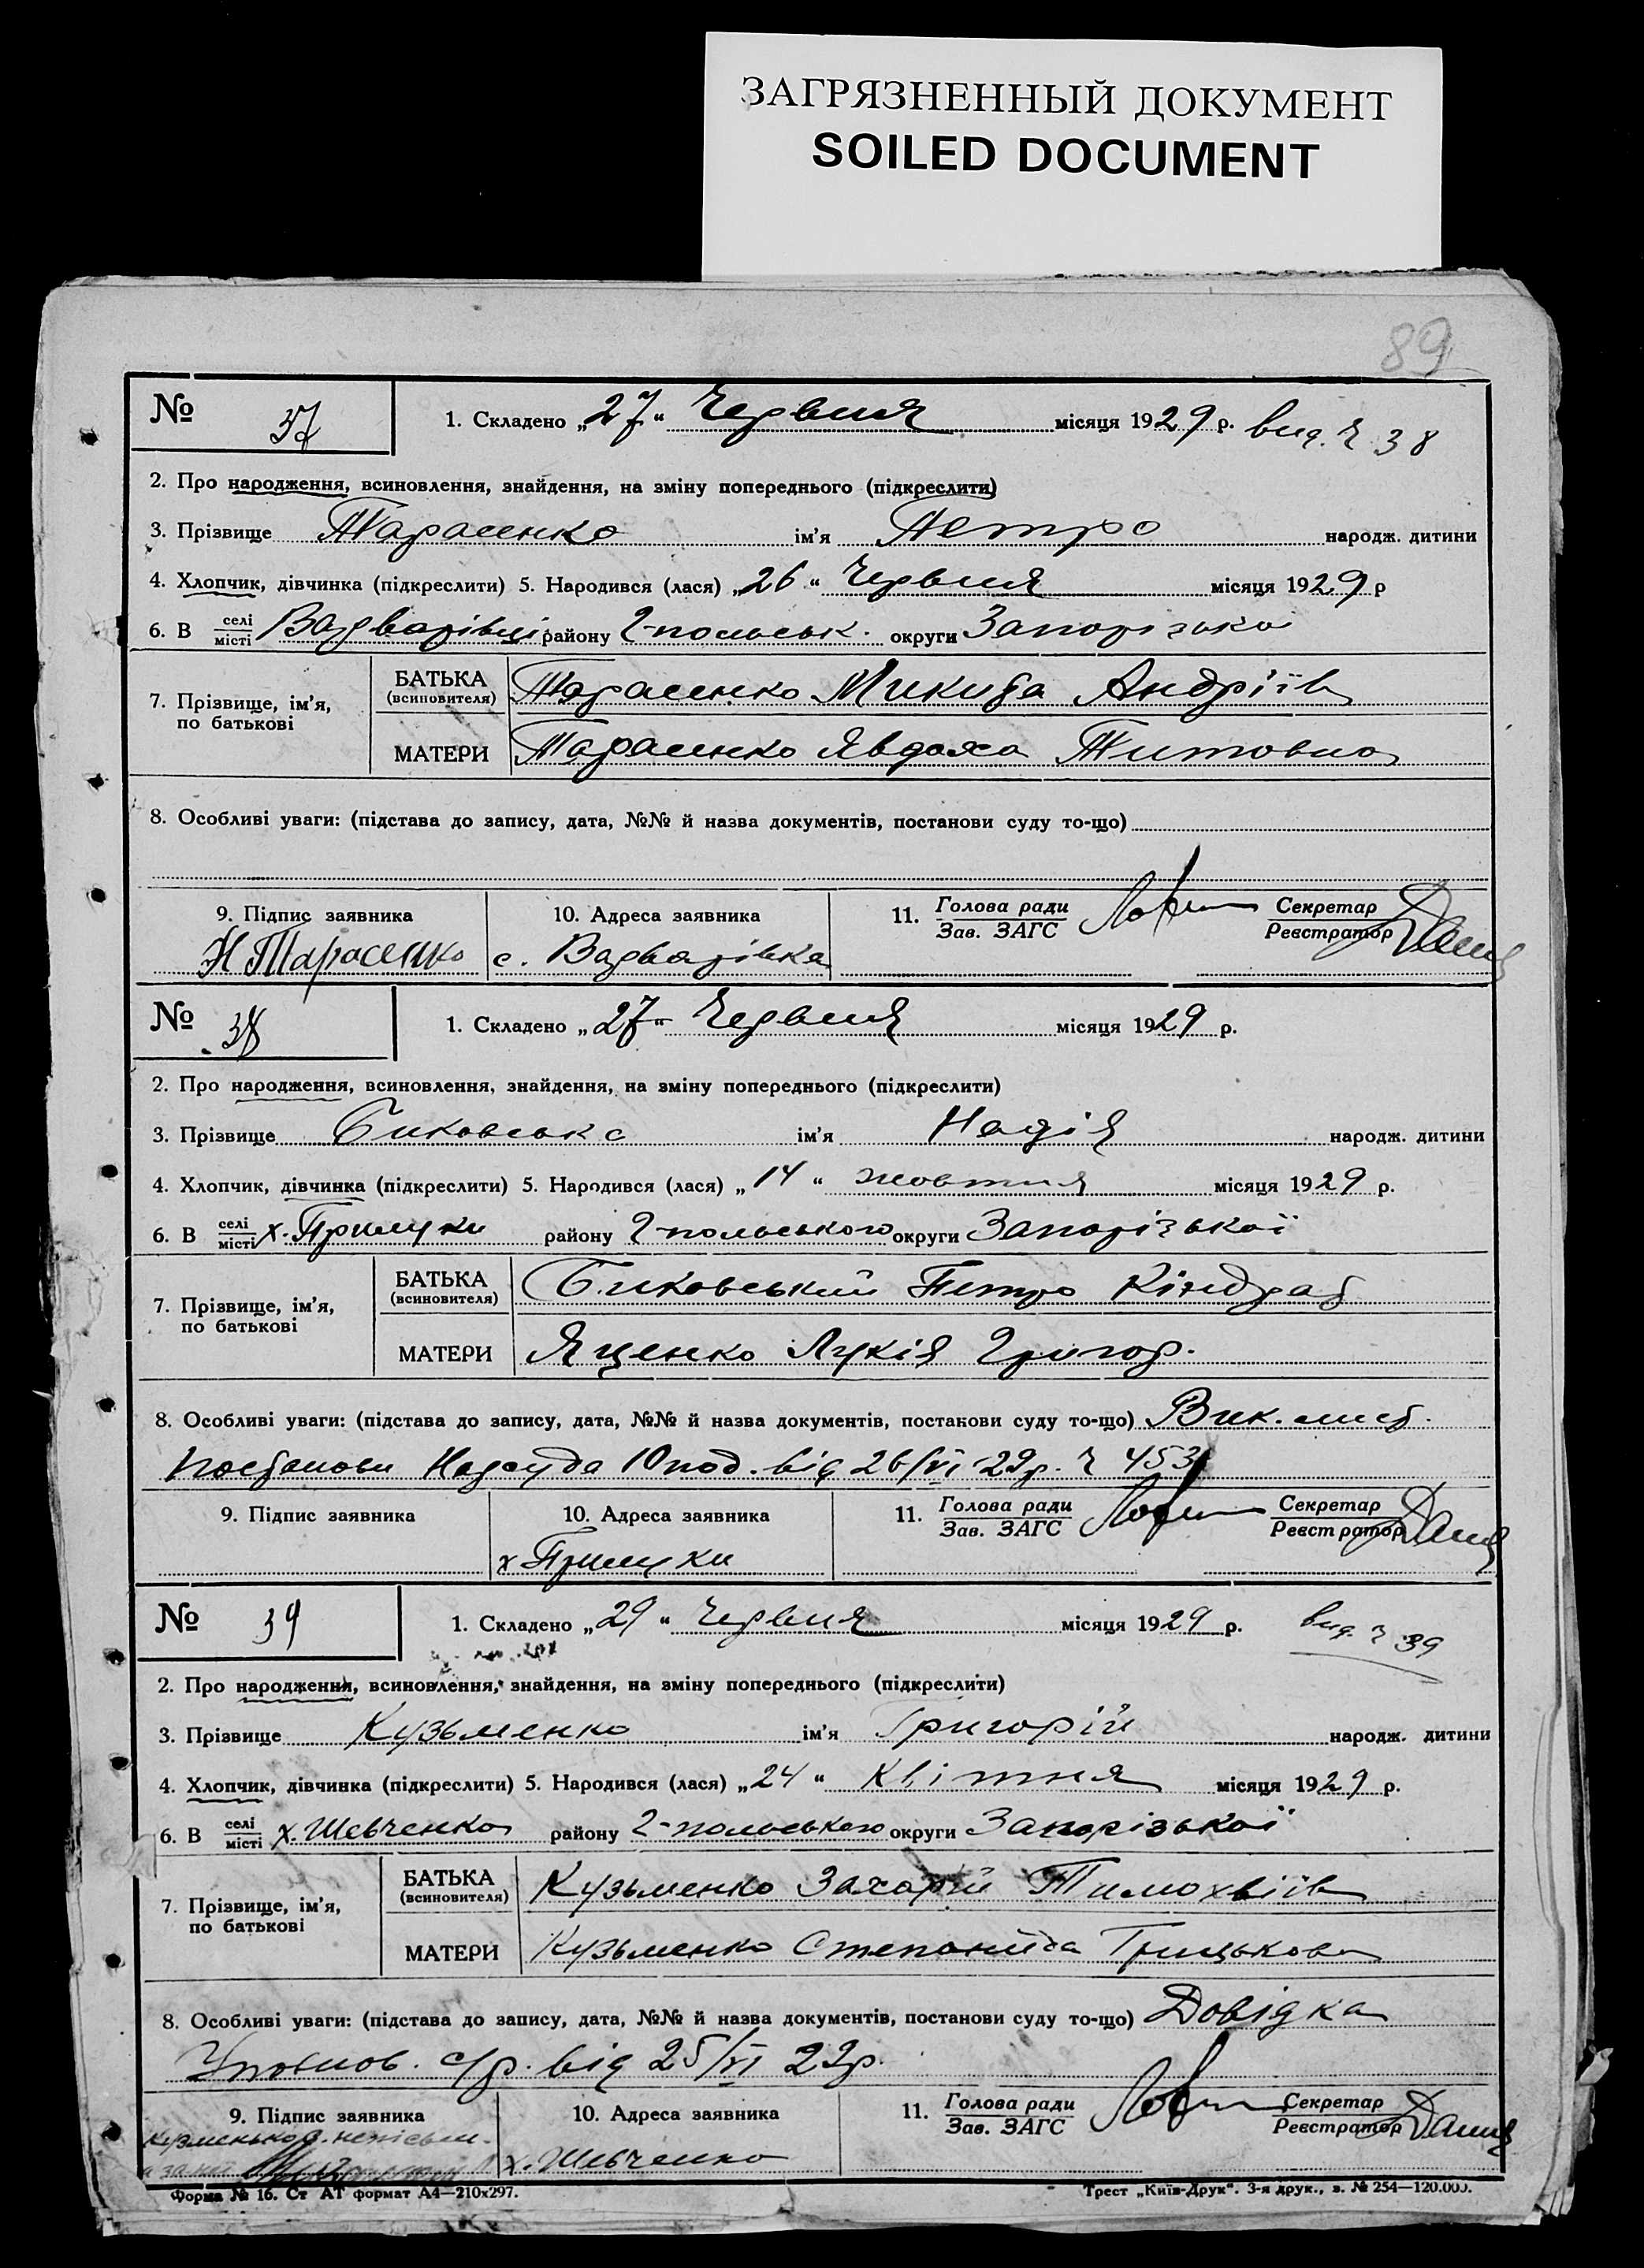 ЗАГРЯЗНЕННЫЙ ДОКУМЕНТ
SOILED DOCUMENT
89
№ 37 1. Складено „27“ Червня місяця 1929 р. вид. Ч 38
2. Про народження, всиновлення, знайдення, на зміну попереднього (підкреслити)
3. Прізвище Тарасенко ім’я Петро народж. дитини
4. Хлопчик, дівчинка (підкреслити) 5. Народився (лася) „26“ Червня місяця 1929 р
6. В селі/місті Варварівці району Г-польськ. округи Запорізької
7. Прізвище, ім’я, по батькові
БАТЬКА (всиновителя) Тарасенко Микита Андріїв
МАТЕРИ Тарасенко Явдоха Титовна
8. Особливі уваги: (підстава до запису, дата, №№ й назва документів, постанови суду то-що)
9. Підпис заявника 10. Адреса заявника 11. Голова ради/Зав. ЗАГС Секретар/Реєстратор
Н Тарасенко с. Варварівка
№ 38 1. Складено „27“ Червня місяця 1929 р.
2. Про народження, всиновлення, знайдення, на зміну попереднього (підкреслити)
3. Прізвище Биковська ім’я Надія народж. дитини
4. Хлопчик, дівчинка (підкреслити) 5. Народився (лася) „14“ жовтня місяця 1929 р.
6. В селі/місті х. Прилуки району Г-польського округи Запорізької
7. Прізвище, ім’я, по батькові
БАТЬКА (всиновителя) Биковський Петро Кіндрат
МАТЕРИ Яценко Лукія Григор.
8. Особливі уваги: (підстава до запису, дата, №№ й назва документів, постанови суду то-що) Вик. лист.
постанови Нарсуда 10 под. від 26/VI 29р. Ч 453
9. Підпис заявника 10. Адреса заявника 11. Голова ради/Зав. ЗАГС Секретар/Реєстратор
х Прилуки
№ 39 1. Складено „29“ Червня місяця 1929 р. вид. Ч 39
2. Про народження, всиновлення, знайдення, на зміну попереднього (підкреслити)
3. Прізвище Кузьменко ім’я Григорій народж. дитини
4. Хлопчик, дівчинка (підкреслити) 5. Народився (лася) „24“ Квітня місяця 1929 р.
6. В селі/місті х. Шевченко району Г-польського округи Запорізької
7. Прізвище, ім’я, по батькові
БАТЬКА (всиновителя) Кузьменко Захарій Тимохвіїв
МАТЕРИ Кузьменко Степанида Грицькова
8. Особливі уваги: (підстава до запису, дата, №№ й назва документів, постанови суду то-що) Довідка
Уповнов. с/р. від 25/VI 29р.
9. Підпис заявника 10. Адреса заявника 11. Голова ради/Зав. ЗАГС Секретар/Реєстратор
х. Шевченко
Форма № 16. Ст АТ формат А4—210x297. Трест „Київ-Друк“. 3-я друк., з. № 254—120.000.